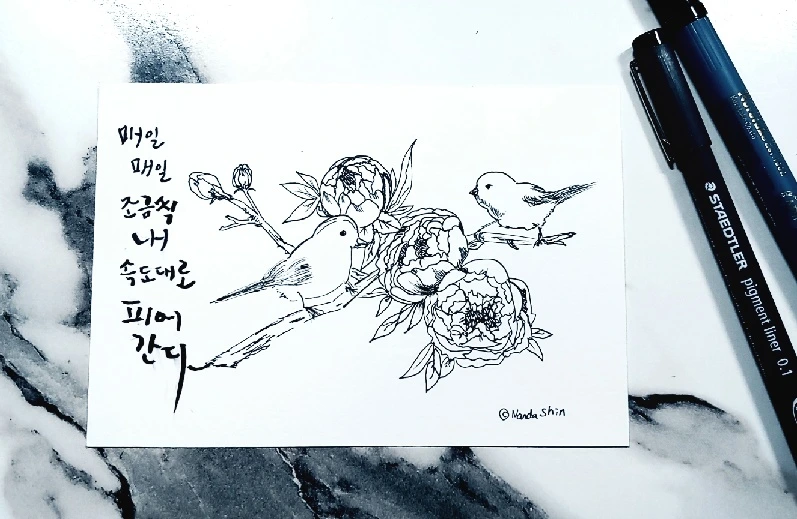 매일
매일
조금씩
내
속도대로
피어
간다
©Nanda Shin
STAEDTLER pigment liner 0.1